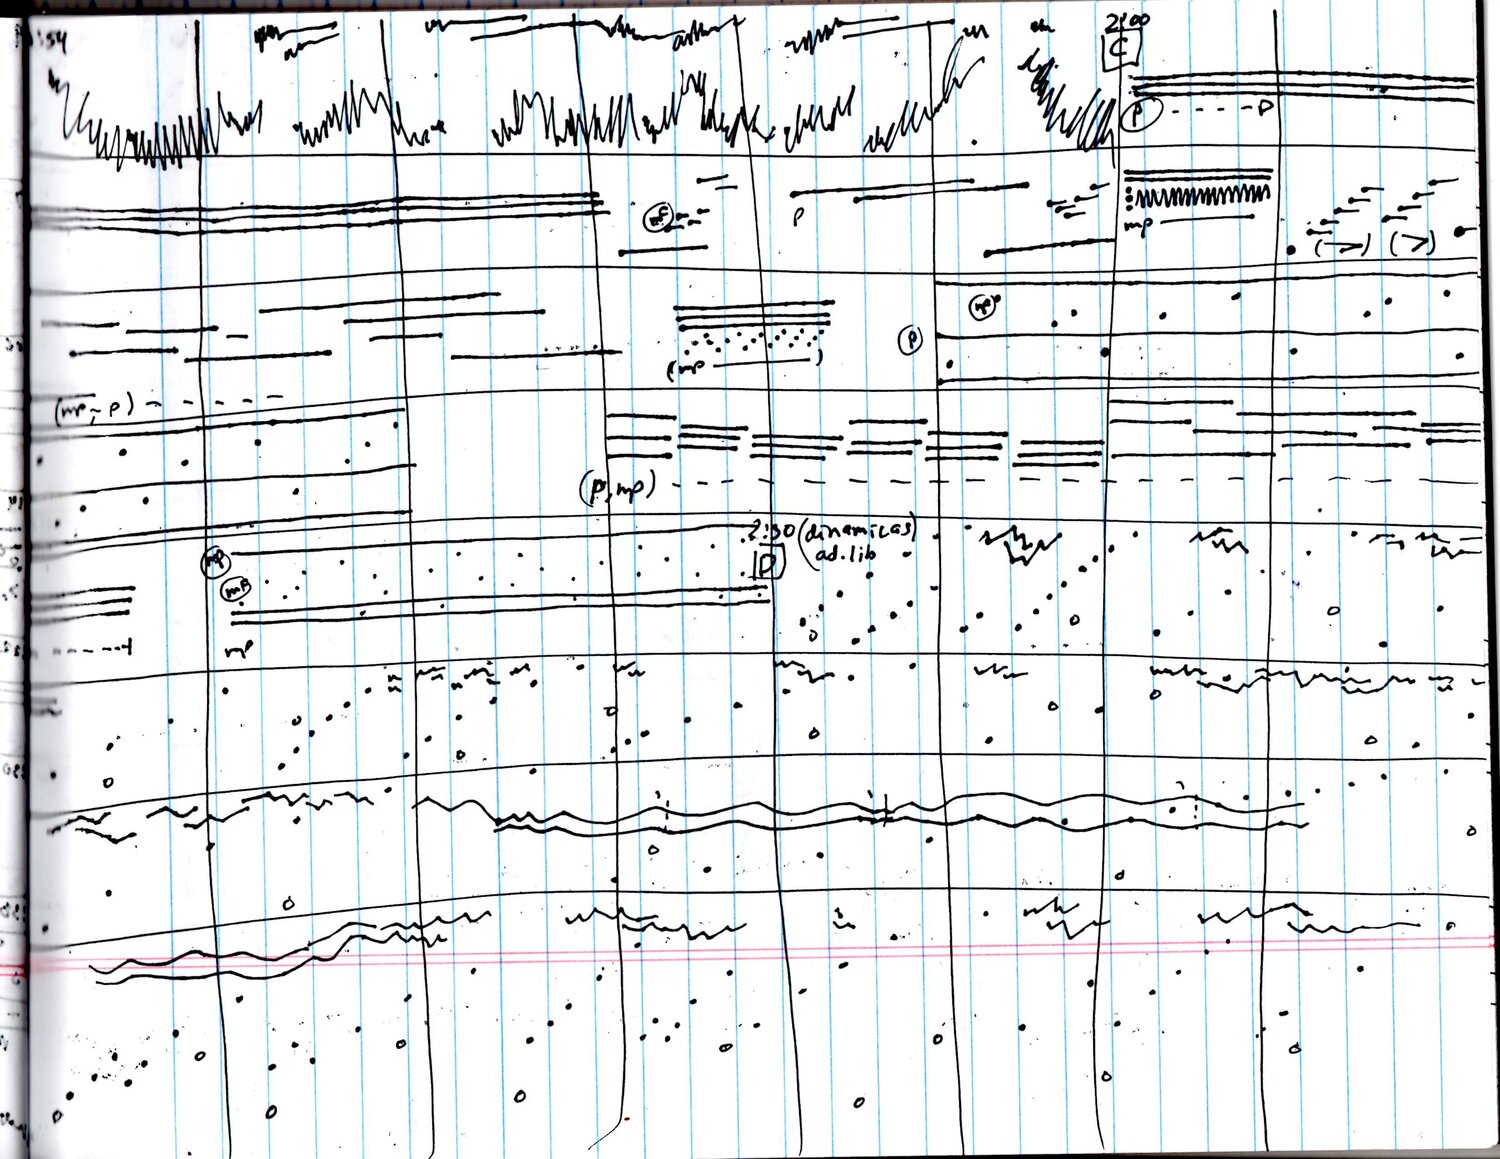 :54
2:00
C
p - - - - - p
mf
p
mp
(>) (>)
mp
p
(mp)
(mp, p) - - - - -
(p, mp) - - - - -
2:30 (dinamicas
ad.lib
D
mp
mp